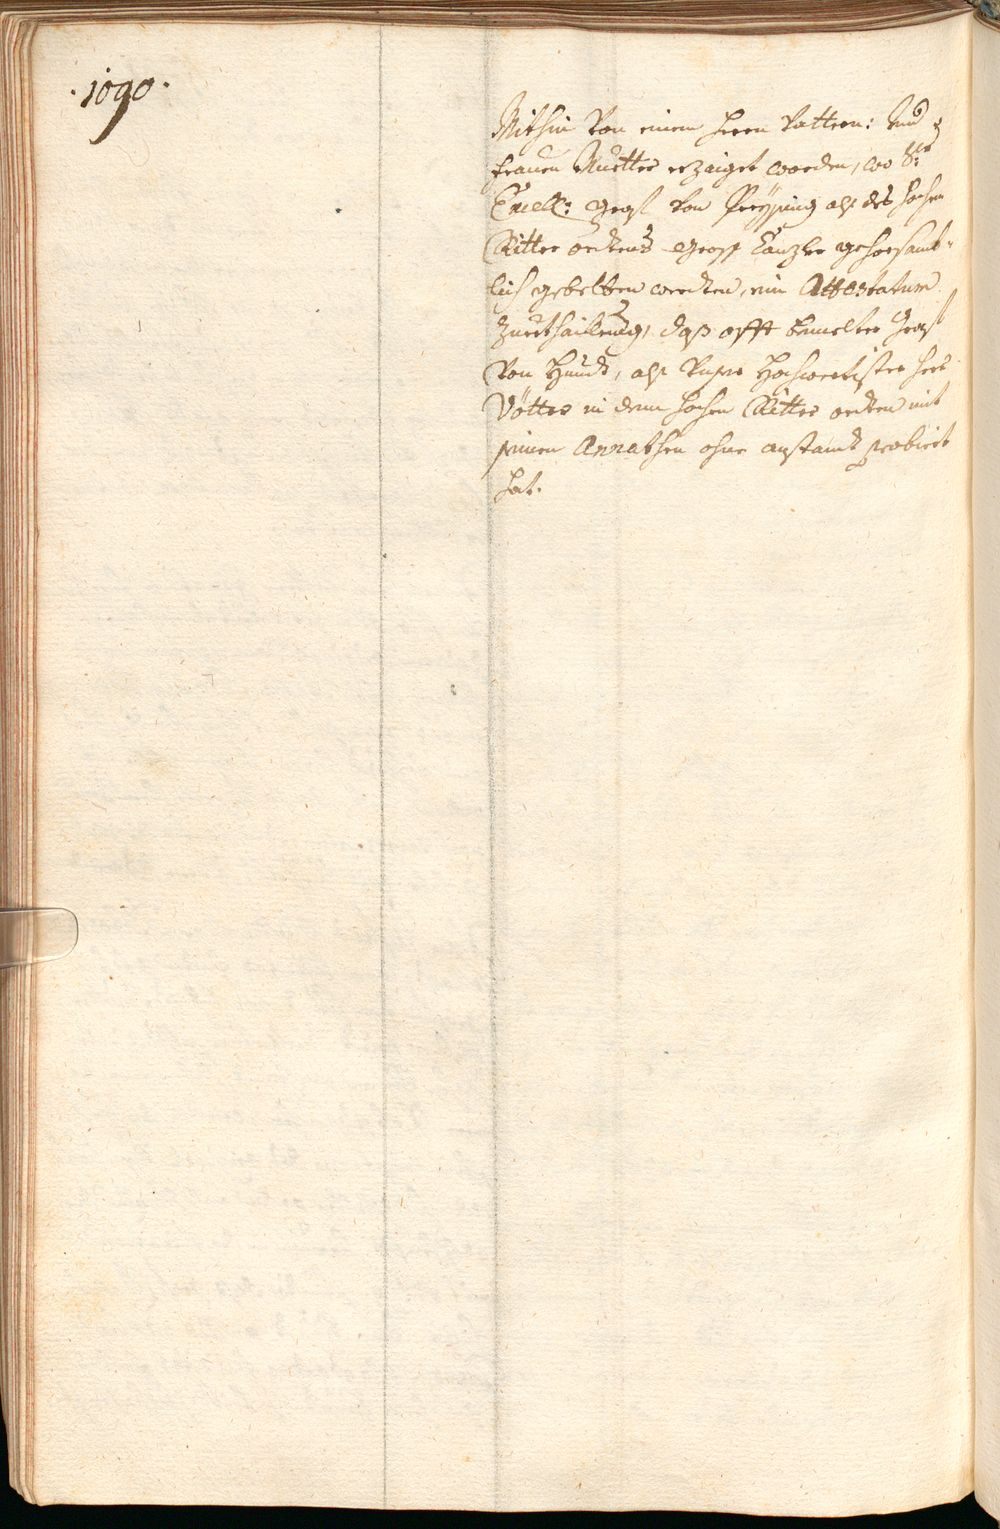 ·1090·
Mithin von einem Herrn Vattern: Und
Frauen Muetter erzaiget worden, wo Sr:
Excell: Graf von Preysing als des hochen
Ritter ordtens Gross Canzler gehorsamb-
lich gebetten werdten, ein Attestatum
zuerthaillen, daß offt bemelter Graf
von Hundt, als Hochwerthister Herr
Vötter in dem hochen Ritter ordten mit
seinen Annathen ohne anstandt probiert
hat.